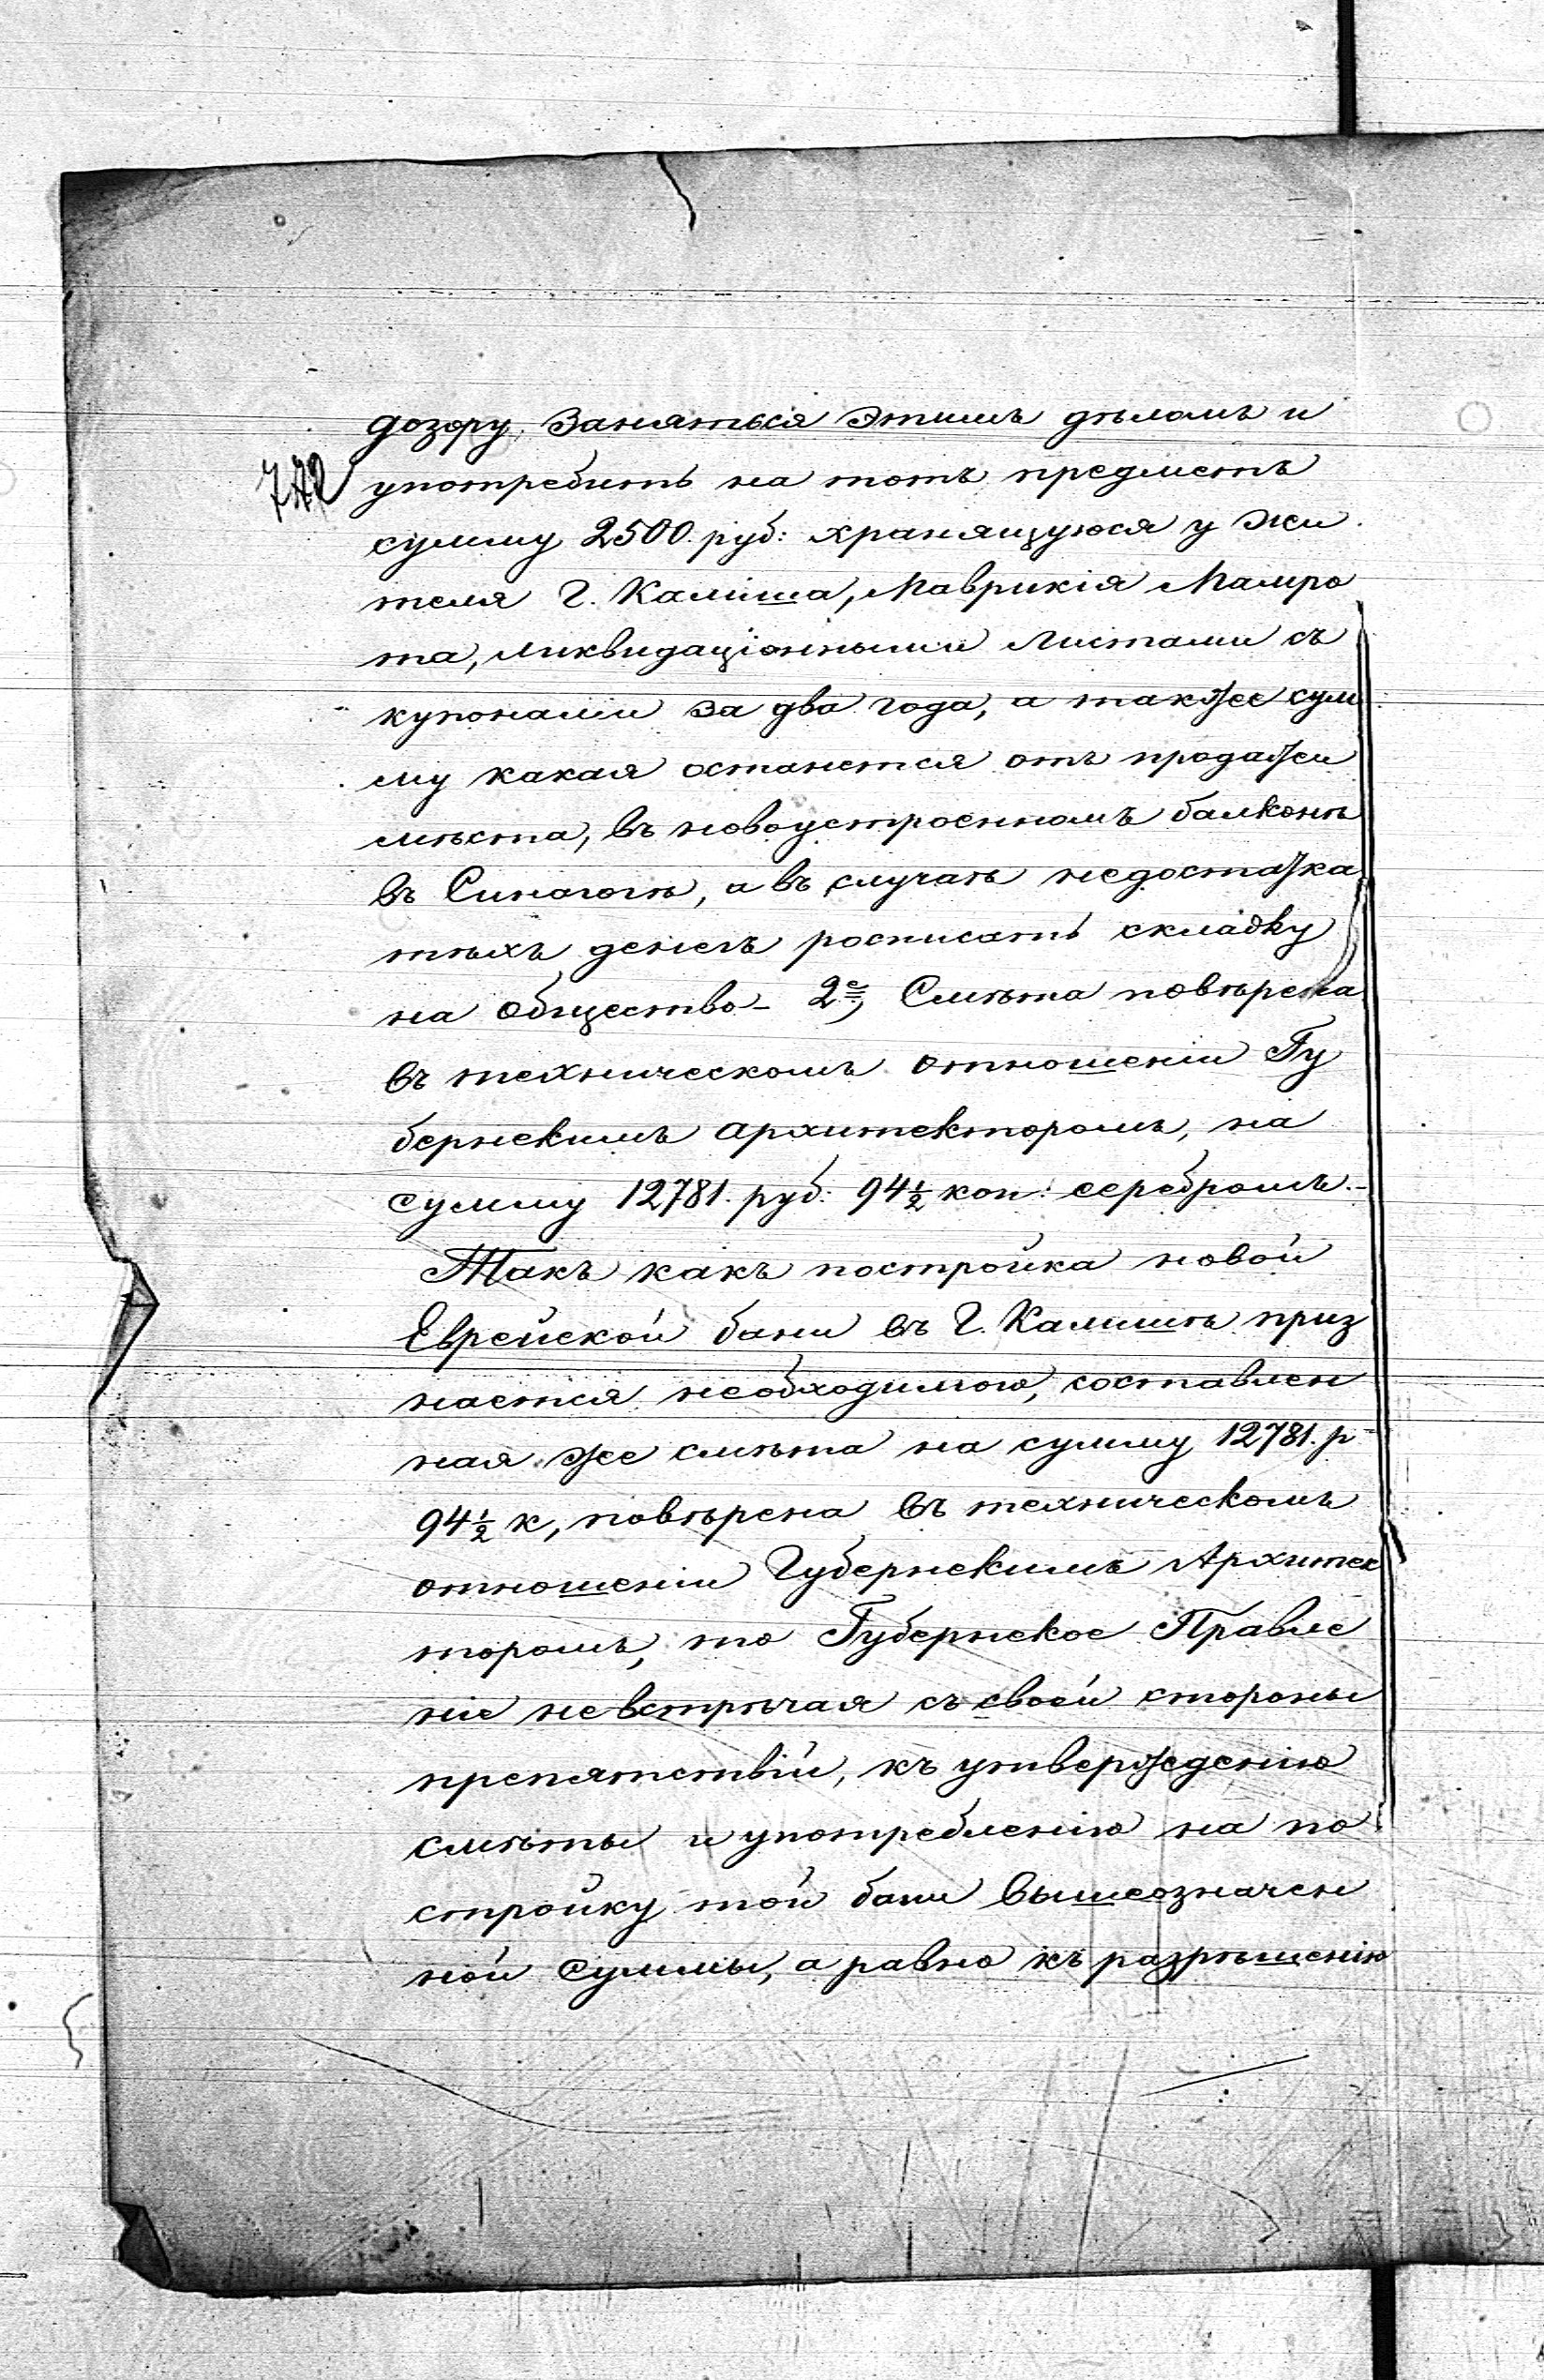 дозору, заняться этимъ дѣломъ и
употребить на тотъ предметъ
сумму 2500. руб: хранящуюся у жи
теля Г. Калиша, Маврикія Мамро
та, ликвидаціонными листами съ
купонами за два года, а также сум
му какая останется отъ продажи
мѣста, въ новоустроенномъ балконѣ
въ Синагогѣ, а въ случаѣ недостатка
тѣхъ денегъ росписать складку
на общество – 2е, Смѣта повѣрена
въ техническомъ отношеніи Гу
бернскимъ архитекторомъ, на
сумму 12781. руб: 94½ коп: серебромъ. –
Такъ какъ постройка новой
Еврейской бани въ Г. Калишѣ приз
нается необходимою, составлен
ная же смѣта на сумму 12781. р
94½ к, повѣрена въ техническомъ
отношеніи Губернскимъ Архитек
торомъ, то Губернское Правле
ніе не встрѣчая съ своей стороны
препятствій, къ утвержденію
смѣты и употребленію на по
стройку той бани вышеозначен
ной суммы, а равно къ разрѣшенію